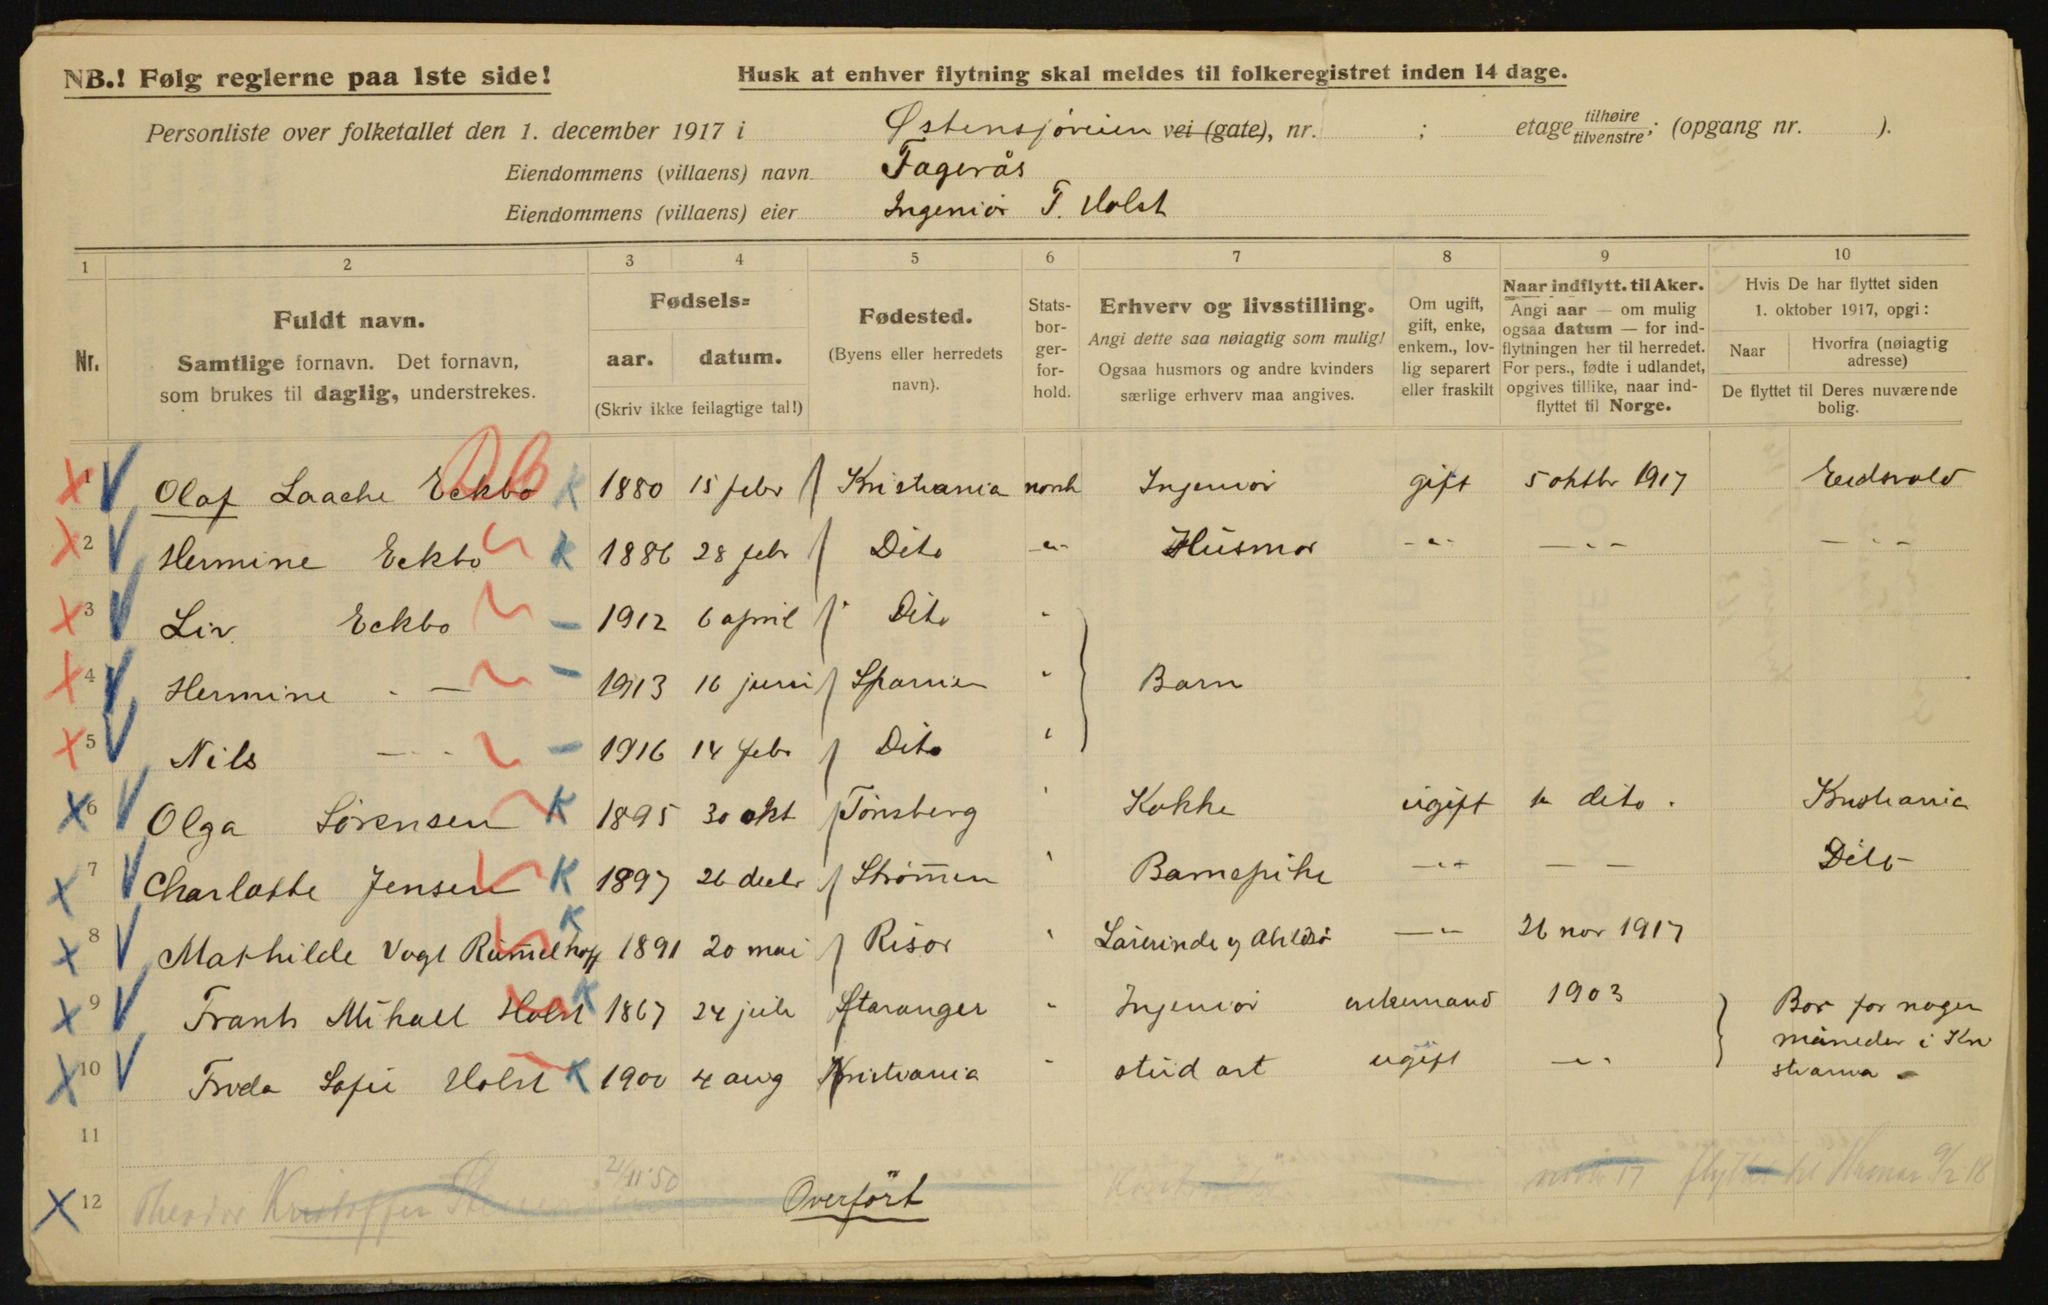 NB.! Følg reglerne paa 1ste side!
Husk at enhver flytning skal meldes til folkeregistret inden 14 dage.
Personliste over folketallet den 1. december 1917 i Østensjøveien vei (gate), nr. ; etage tilhøire tilvenstre; (opgang nr. ).
Eiendommens (villaens) navn Fagerås
Eiendommens (villaens) eier Ingeniör F. Holst
1 2 3 4 5 6 7 8 9 10
Nr.
Fuldt navn.
Samtlige fornavn. Det fornavn,
som brukes til daglig, understrekes.
Fødsels=
aar. datum.
(Skriv ikke feilagtige tal!)
Fødested.
(Byens eller herredets
navn).
Stats-
bor-
ger-
for-
hold.
Erhverv og livsstilling.
Angi dette saa nøiagtig som mulig!
Ogsaa husmors og andre kvinders
særlige erhverv maa angives.
Om ugift,
gift, enke,
enkem., lov-
lig separert
eller fraskilt
Naar indflytt. til Aker.
Angi aar — om mulig
ogsaa datum — for ind-
flytningen her til herredet.
For pers., fødte i udlandet,
opgives tillike, naar ind-
flyttet til Norge.
Hvis De har flyttet siden
1. oktober 1917, opgi:
Naar Hvorfra (nøiagtig
adresse)
De flyttet til Deres nuværende
bolig.
1 Olaf Laache Eckbo K 1880 15 febr Kristiania norsk Ingeniör gift 5 oktbr 1917 Eidsvold
2 Hermine Eckbo K 1886 28 febr Dito -"- Husmor -"- -"- -"-
3 Liv Eckbo – 1912 6 april Dito "
4 Hermine -"- – 1913 16 juni Spanien " Barn
5 Nils -"- – 1916 14 febr Dito "
6 Olga Sörensen K 1895 30 okt Tönsberg " Kokke ugift dito. Kristiania
7 Charlotte Jensen K 1897 26 decbr Strömmen " Barnepike -"- — — Dito
8 Mathilde Vogt Rummelhoff K 1891 20 mai Risör " Lärerinde -"- 26 nov 1917
9 Frants Mikael Holst K 1867 24 juli Stavanger " Ingeniör enkemand 1903 Bor for nogen
måneder i Kri
stiania
10 Frida Sofie Holst K 1900 4 aug Kristiania " stud art ugift -"-
11
12 Theodor Kristoffer 21/11 50 Overfört novbr 17 flyttet til Hamar 9/2 18